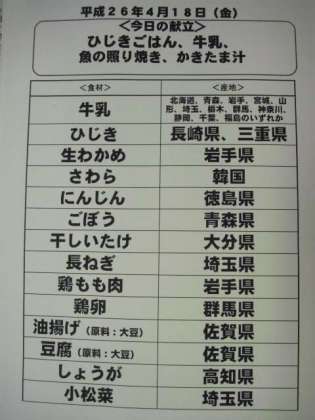 平成26年4月18日（金）
＜今日の献立＞
ひじきごはん、牛乳、
魚の照り焼き、かきたま汁
＜食材＞ ＜産地＞
牛乳 北海道、青森、岩手、宮城、山
形、埼玉、栃木、群馬、神奈川、
静岡、千葉、福島のいずれか
ひじき 長崎県、三重県
生わかめ 岩手県
さわら 韓国
にんじん 徳島県
ごぼう 青森県
干しいたけ 大分県
長ねぎ 埼玉県
鶏もも肉 岩手県
鶏卵 群馬県
油揚げ（原料：大豆） 佐賀県
豆腐（原料：大豆） 佐賀県
しょうが 高知県
小松菜 埼玉県